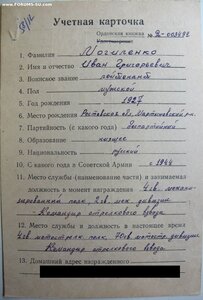 www.FORUMS-SU.com
Учетная карточка
Орденская книжка
2-003498
1. Фамилия Могиленко
2. Имя и отчество Иван Григорьевич
3. Воинское звание лейтенант
4. Пол мужской
5. Год рождения 1927
6. Место рождения Ростовская обл.
7. Партийность (с какого года) беспартийный
8. Образование
9. Национальность русский
10. С какого года в Советской Армии с 1944
11. Место службы (наименование части) и занимаемая
должность в момент награждения 4 гв. механи-
зированный полк, 2 гв. мех. дивизии
Командир стрелкового взвода
12. Место службы и должность в настоящее время
4 гв. мотострелк. полк,
Командир стрелкового взвода
13. Домашний адрес награжденного